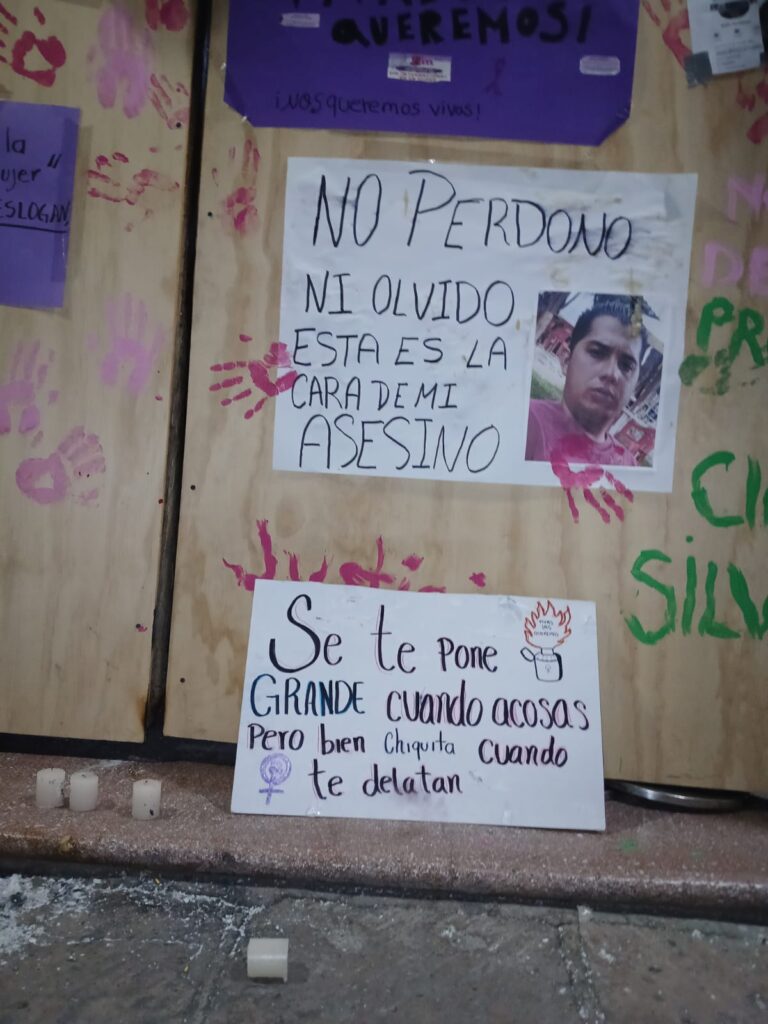 QUEREMOS!
¡NOS queremos vivas!
la
ujer"
ESLOGAN
NO PERDONO
NI OLVIDO
ESTA ES LA
CARA DE MI
ASESINO
PR
CI
SILV
Justici
Se te pone
GRANDE cuando acosas
Pero bien Chiquita cuando
te delatan